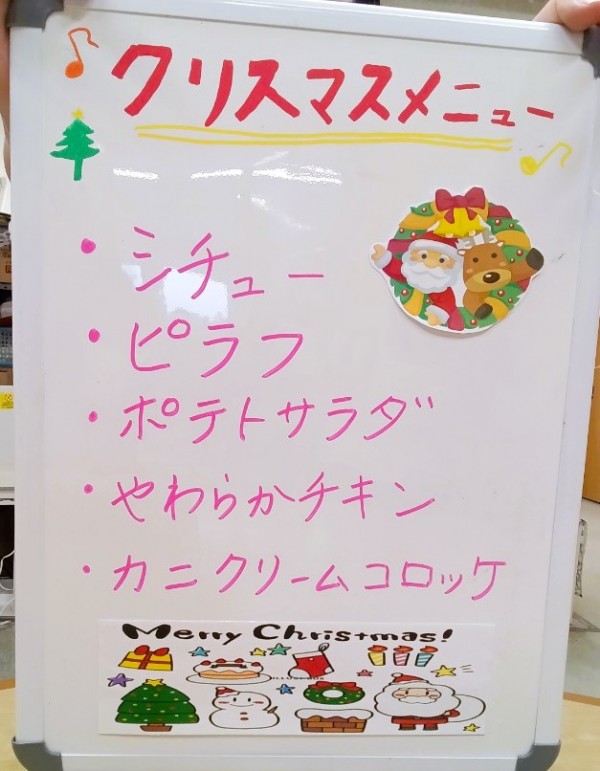 クリスマスメニュー
・シチュー
・ピラフ
・ポテトサラダ
・やわらかチキン
・カニクリームコロッケ
Merry Christmas!